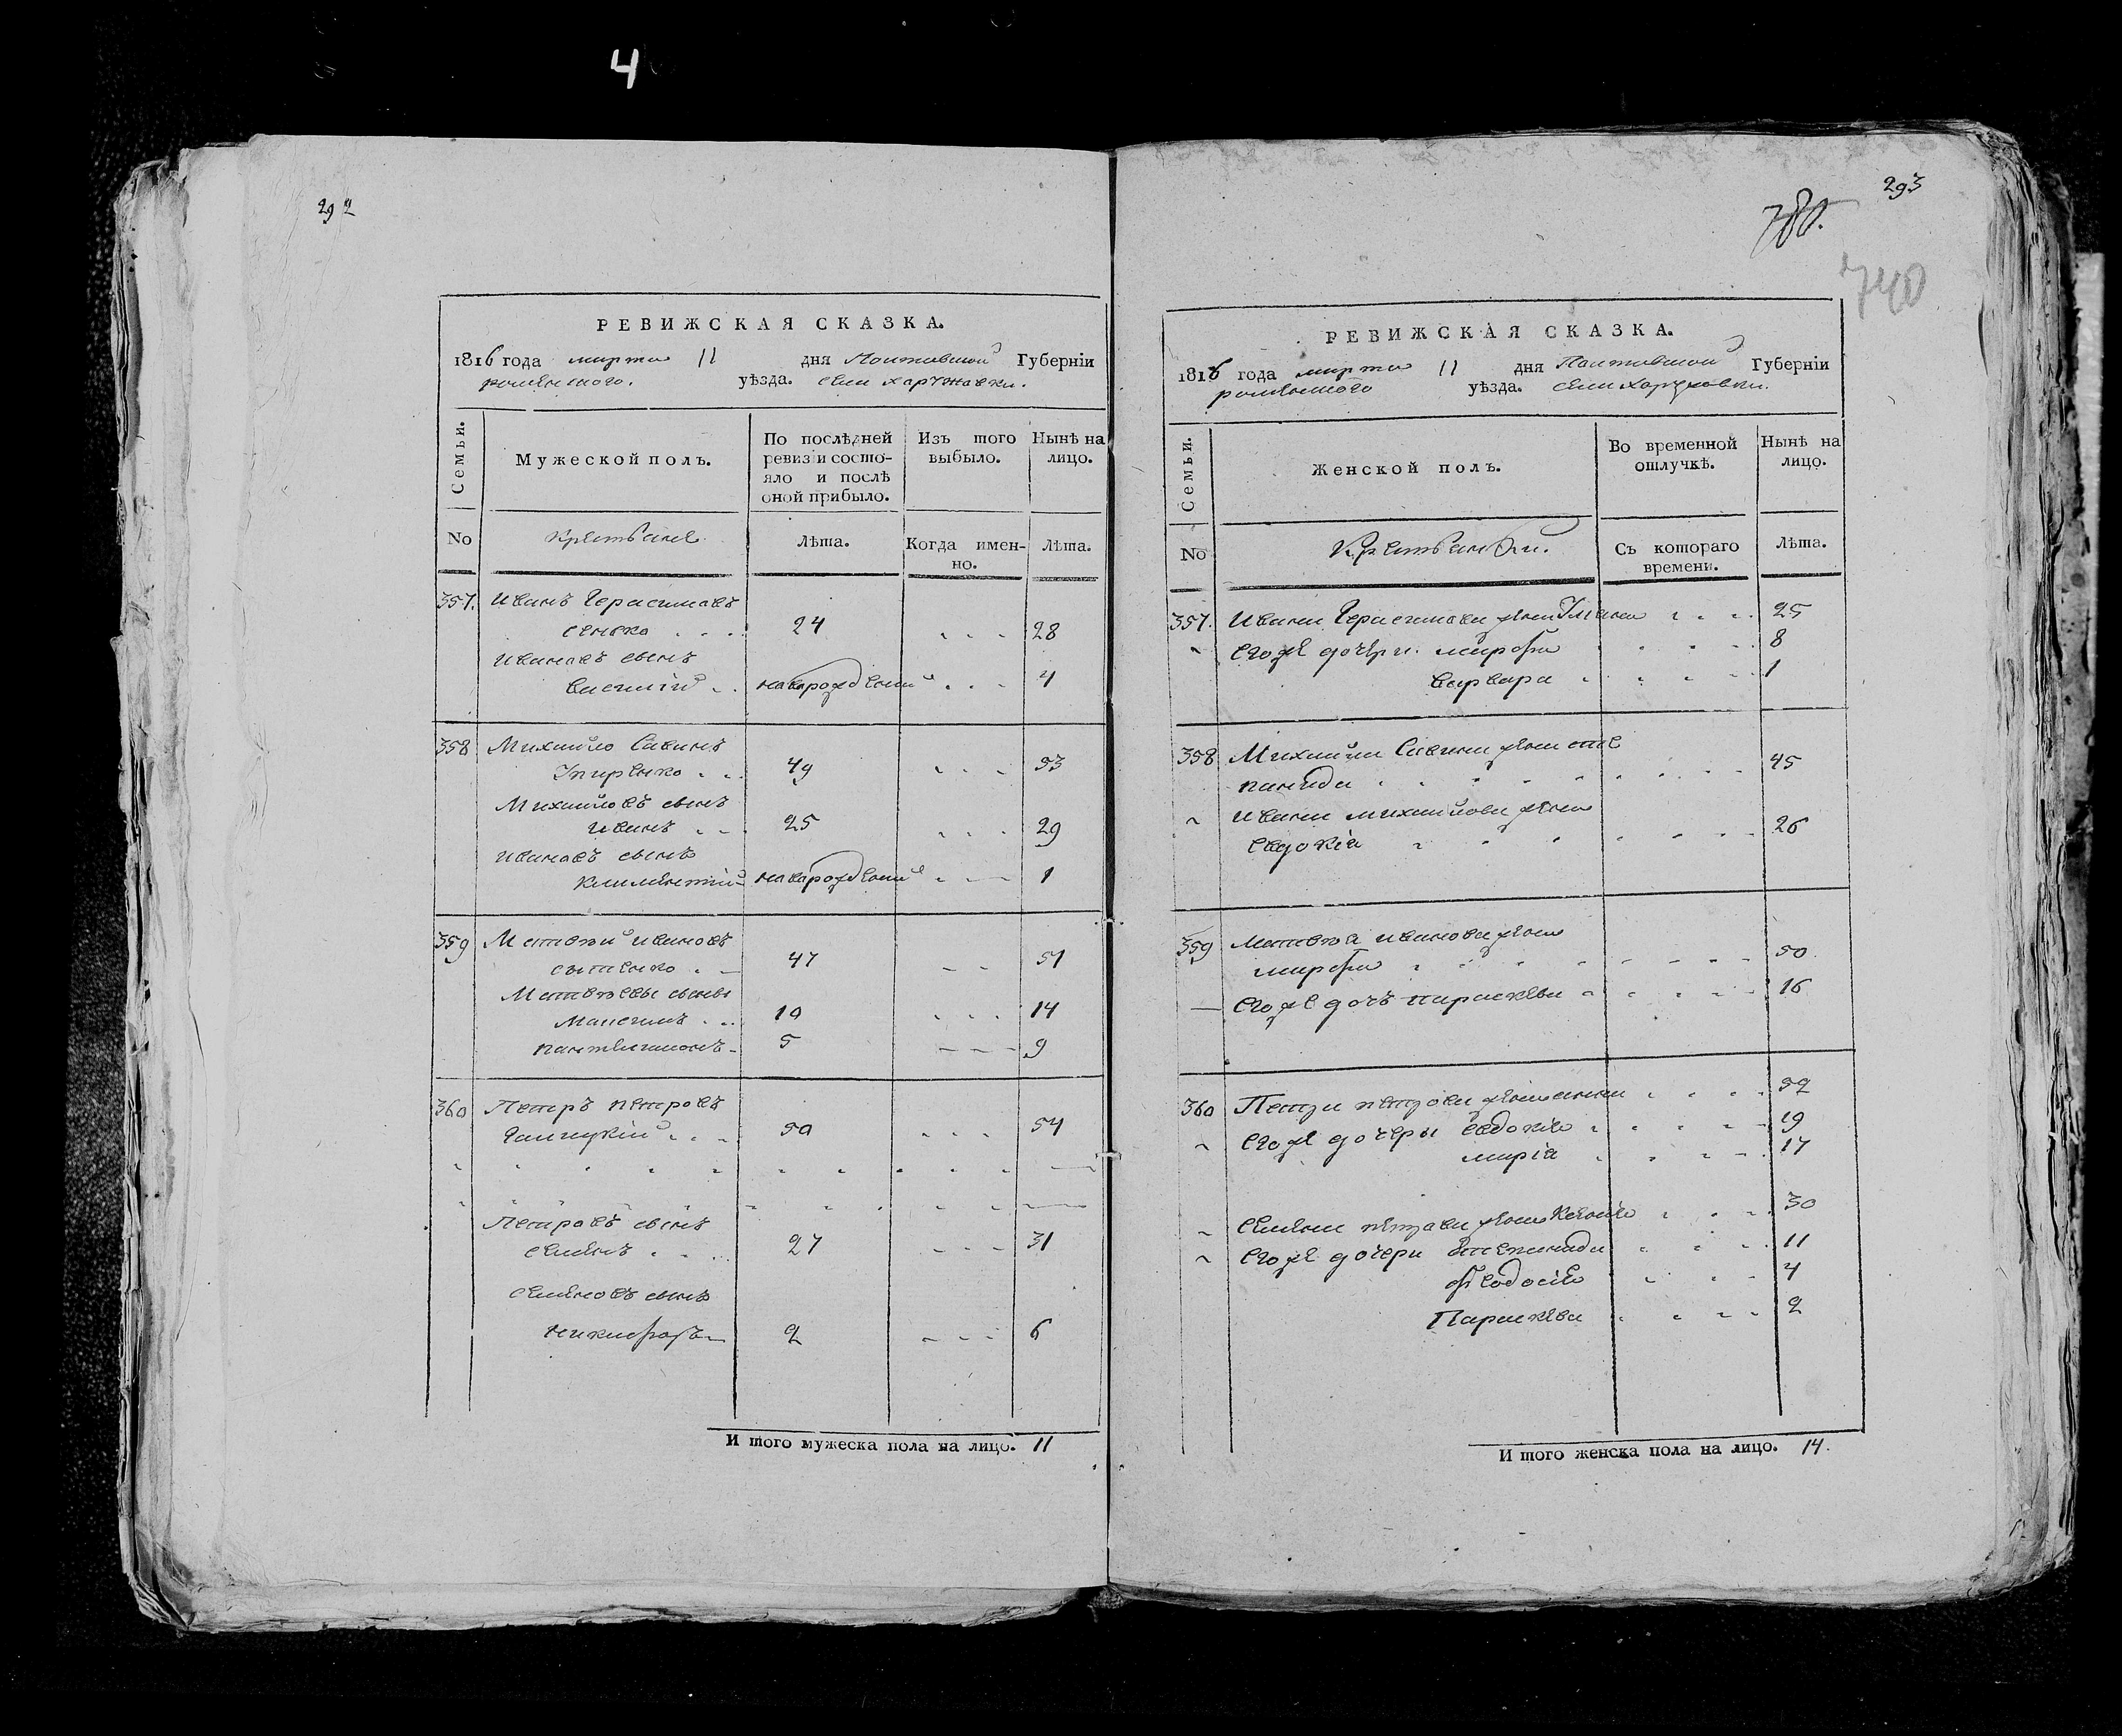 4
292
РЕВИЖСКАЯ СКАЗКА.
1816 года марта 11 дня Полтавской Губерніи
роменского. уѣзда. села
Семьи.
Мужеской полъ.
По послѣдней ревизіи состояло и послѣ оной прибыло.
Изъ того выбыло.
Нынѣ на лицо.
No
Крестьяне.
лѣта.
Когда именно.
лѣта.
357. Иванъ Герасимовъ
сенько 24 28
Ивановъ сынъ
Василій новорожденный 4
358 Михайло Савинъ
49 53
Михайловъ сынъ
Иванъ 25 29
Ивановъ сынъ
Климентій новорожденный 1
359 Матвѣй Ивановъ
47 51
Матвѣевы сыны
10 14
Пантелимонъ 5 9
360 Петръ Петровъ
50 54
Петровъ сынъ
Семенъ 27 31
Семеновъ сынъ
Никифоръ 2 6
И того мужеска пола на лицо. 11
293
780.
740
РЕВИЖСКАЯ СКАЗКА.
1816 года марта 11 дня Полтавской Губерніи
роменского уѣзда. села
Семьи.
Женской полъ.
Во временной отлучкѣ.
Нынѣ на лицо.
No
Крестьянки.
Съ котораго времени.
лѣта.
357. Ивана Герасимова жена 25
его же дочери. марфа 8
варвара 1
358 Михайла Савина жена сте
панида 45
Ивана михайлова жена
евдокіа 26
359 Матвѣа иванова жена
марфа 50
его же дочъ параскева 16
360 Петра петрова жена анна 52
его же дочеры евдокіа 19
маріа 17
Семена петрова жена 30
его же дочери степанида 11
феодосіа 4
Параскева 2
И того женска пола на лицо. 14.